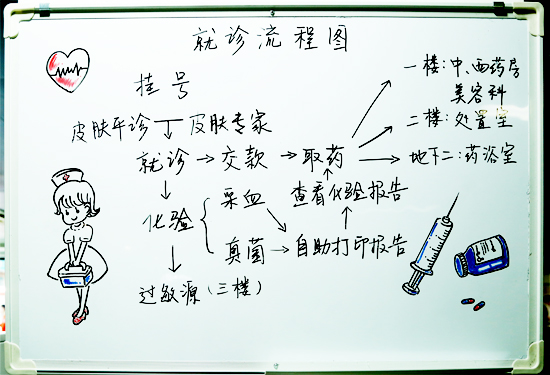 就诊流程图
挂号
皮肤平诊 皮肤专家
就诊→交款→取药
一楼:中、西药房
美容科
二楼:处置室
地下二:药浴室
查看化验报告
化验
采血
真菌→自助打印报告
过敏源(三楼)